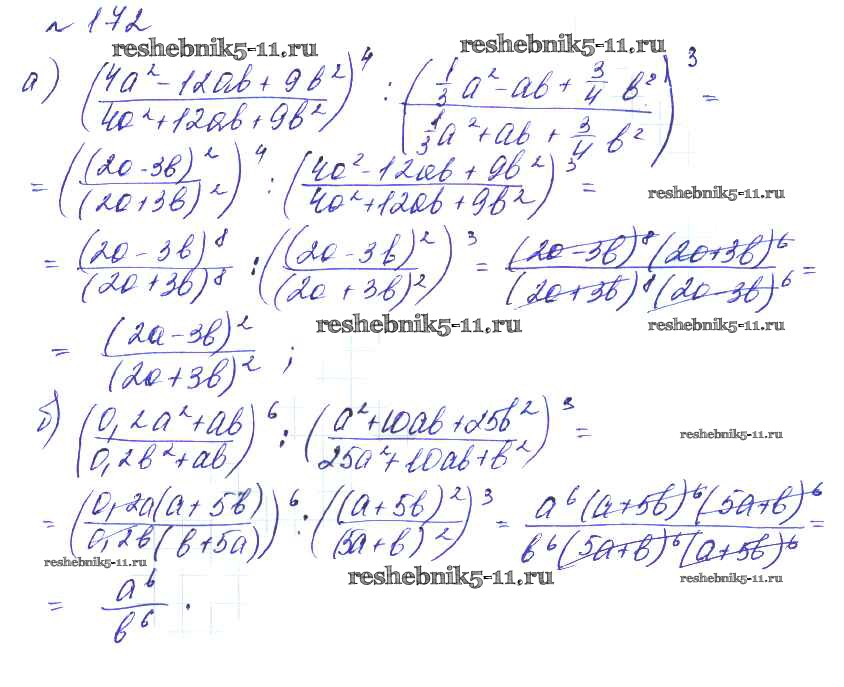 № 172
reshebnik5-11.ru reshebnik5-11.ru
а) ((4a² - 12ab + 9b²)/(4a² + 12ab + 9b²))⁴ : ((1/3 a² - ab + 3/4 b²)/(1/3 a² + ab + 3/4 b²))³ =
= ((2a - 3b)²/(2a + 3b)²)⁴ : ((4a² - 12ab + 9b²)/(4a² + 12ab + 9b²))³ =
reshebnik5-11.ru
= (2a - 3b)⁸/(2a + 3b)⁸ : ((2a - 3b)²/(2a + 3b)²)³ = (2a - 3b)⁸(2a + 3b)⁶/(2a + 3b)⁸(2a - 3b)⁶ =
reshebnik5-11.ru reshebnik5-11.ru
= (2a - 3b)²/(2a + 3b)² ;
б) ((0,2a² + ab)/(0,2b² + ab))⁶ : ((a² + 10ab + 25b²)/(25a² + 10ab + b²))³ =
reshebnik5-11.ru
= (0,2a(a + 5b)/0,2b(b + 5a))⁶ : ((a + 5b)²/(5a + b)²)³ = a⁶(a + 5b)⁶(5a + b)⁶/b⁶(5a + b)⁶(a + 5b)⁶ =
reshebnik5-11.ru reshebnik5-11.ru reshebnik5-11.ru
= a⁶/b⁶ .